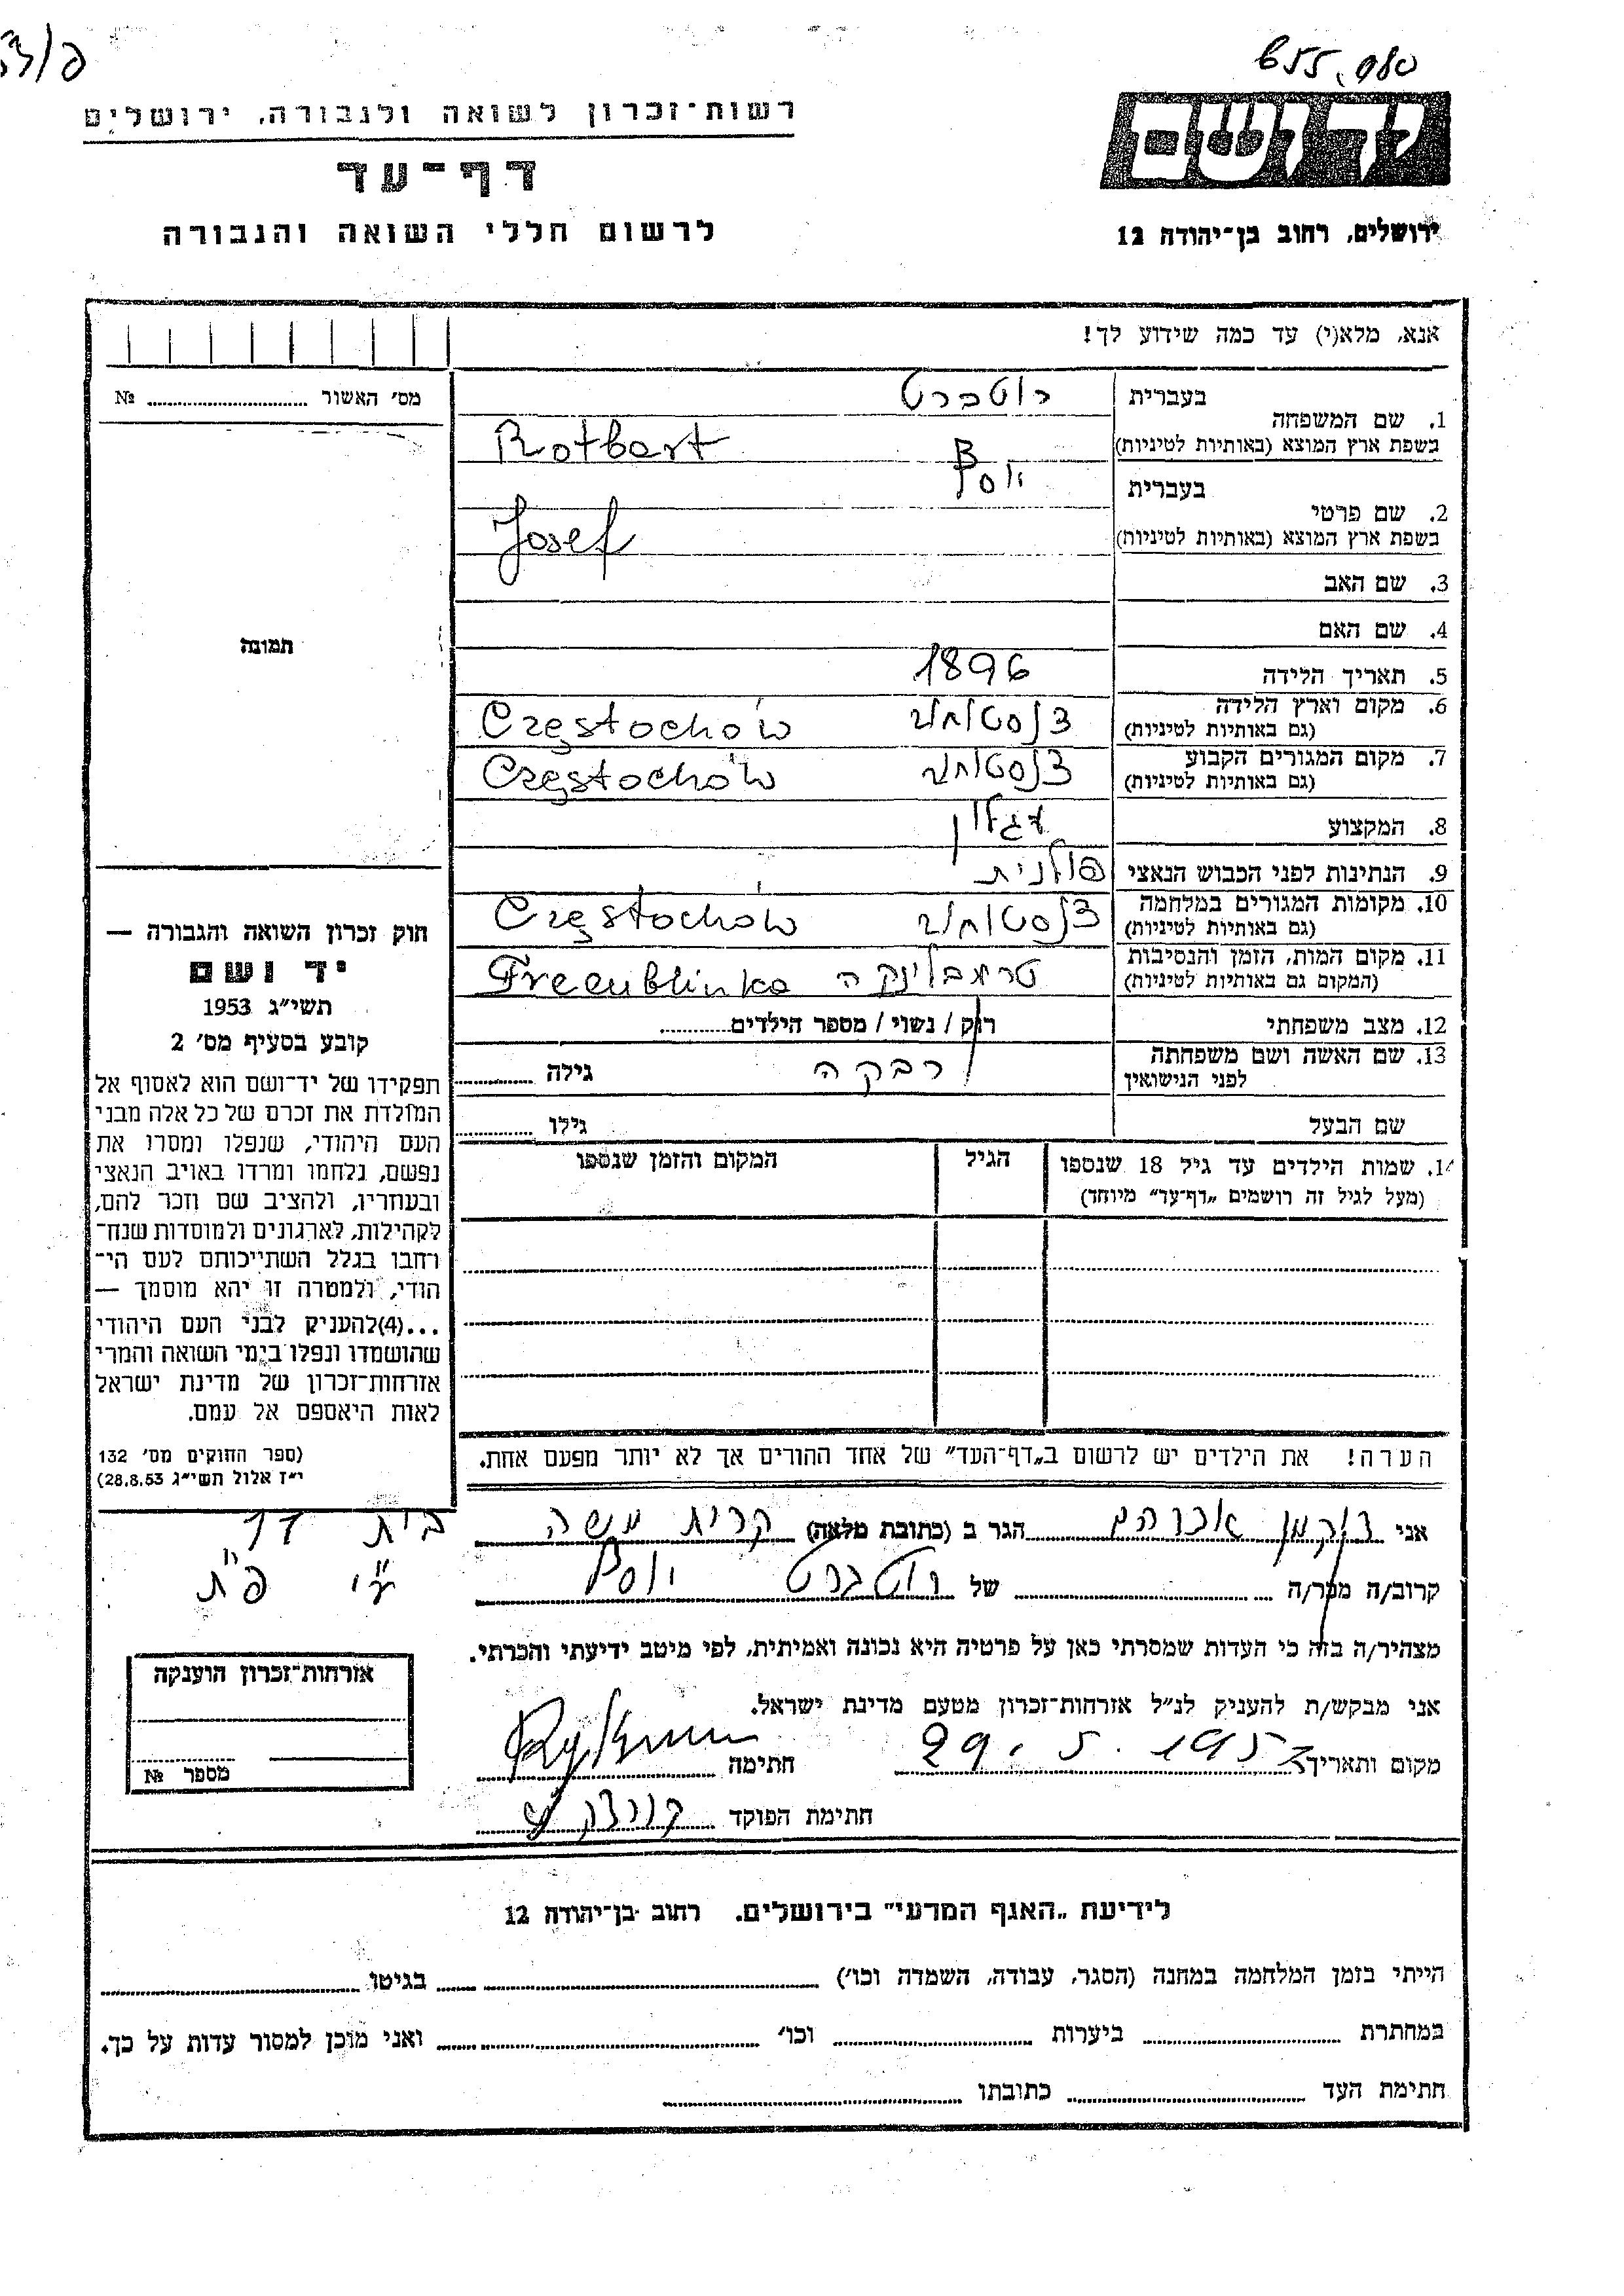 רשות־זכרון לשואה ולגבורה, ירושלים
דף־עד
לרשום חללי השואה והגבורה
655.080
ידושם
ירושלים, רחוב בן־יהודה 12
אנא, מלא(י) עד כמה שידוע לך!
מס׳ האשור ........ №
תמונה
1. שם המשפחה
בעברית רוטברט
בשפת ארץ המוצא (באותיות לטיניות) Rotbart
2. שם פרטי
בעברית יוסף
בשפת ארץ המוצא (באותיות לטיניות) Josef
3. שם האב
4. שם האם
5. תאריך הלידה 1896
6. מקום וארץ הלידה
(גם באותיות לטיניות) צ'נסטוחוב Częstochów
7. מקום המגורים הקבוע
(גם באותיות לטיניות) צ'נסטוחוב Częstochów
8. המקצוע
9. הנתינות לפני הכבוש הנאצי פולנית
10. מקומות המגורים במלחמה
(גם באותיות לטיניות) צ'נסטוחוב Częstochów
11. מקום המות, הזמן והנסיבות
(המקום גם באותיות לטיניות) טרמבלינקה Treemblinka
12. מצב משפחתי רוק / נשוי / מספר הילדים........
13. שם האשה ושם משפחתה
לפני הנישואין רבקה גילה ........
שם הבעל גילו ........
14. שמות הילדים עד גיל 18 שנספו
(מעל לגיל זה רושמים „דף־עד” מיוחד)
הגיל
המקום והזמן שנספו
הערה! את הילדים יש לרשום ב„דף־העד” של אחד ההורים אך לא יותר מפעם אחת.
חוק זכרון השואה והגבורה —
יד ושם
תשי״ג 1953
קובע בסעיף מס׳ 2
תפקידו של יד־ושם הוא לאסוף אל
המולדת את זכרם של כל אלה מבני
העם היהודי, שנפלו ומסרו את
נפשם, נלחמו ומרדו באויב הנאצי
ובעוזריו, ולהציב שם וזכר להם,
לקהילות, לארגונים ולמוסדות שנח־
רחבו בגלל השתייכותם לעם הי־
הודי, ולמטרה זו יהא מוסמך —
...(4)להעניק לבני העם היהודי
שהושמדו ונפלו בימי השואה והמרי
אזרחות־זכרון של מדינת ישראל
לאות היאספם אל עמם.
(ספר החוקים מס׳ 132
י״ז אלול תשי״ג 28.8.53)
אני אברהם הגר ב (כתובת מלאה) קרית משה
בית
קרוב/ה מכר/ה של רוטברט יוסף
ע"י פ"ת
מצהיר/ה בזה כי העדות שמסרתי כאן על פרטיה היא נכונה ואמיתית, לפי מיטב ידיעתי והכרתי.
אני מבקש/ת להעניק לנ״ל אזרחות־זכרון מטעם מדינת ישראל.
מקום ותאריך 29. 5. 195 חתימה
חתימת הפוקד
אזרחות־זכרון הוענקה
מספר №
לידיעת „האגף המדעי” בירושלים. רחוב בן־יהודה 12
הייתי בזמן המלחמה במחנה (הסגר, עבודה, השמדה וכו׳) ........ בגיטו ........
במחתרת ........ ביערות ........ וכו׳ ........ ואני מוכן למסור עדות על כך.
חתימת העד ........ כתובתו ........